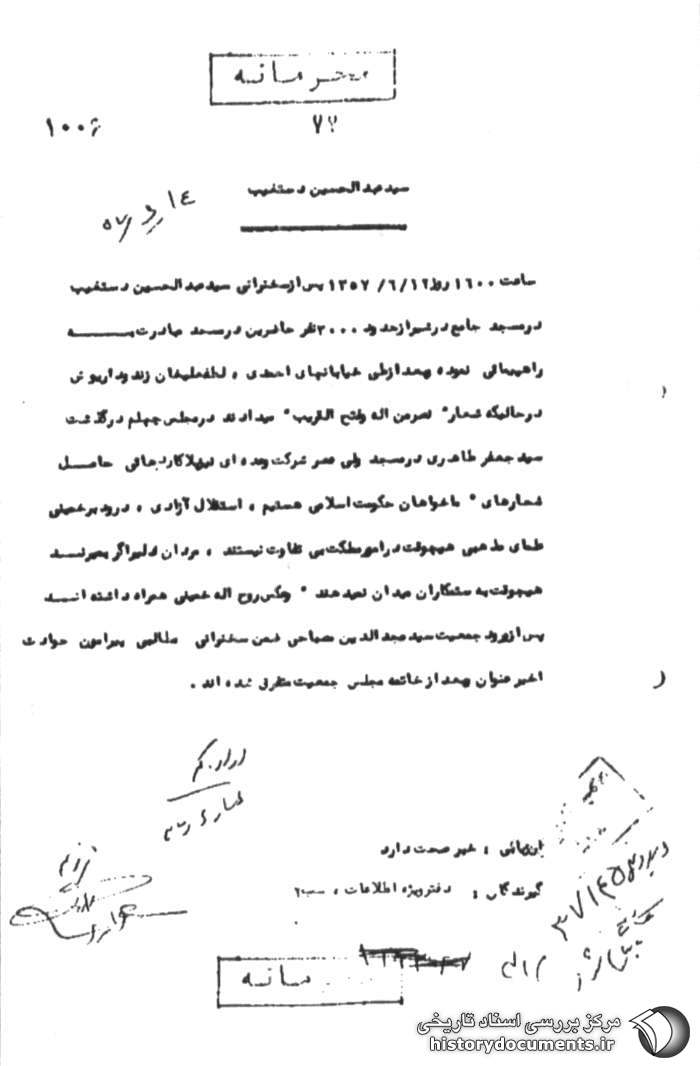 محرمانه
۷۲
۱۰۰۶
سید عبدالحسین دستغیب
ساعت ۱۶۰۰ روز ۱۳۵۷/۶/۱۲ پس از سخنرانی سید عبدالحسین دستغیب
در مسجد جامع در شیراز حدود ۳۰۰۰ نفر حاضرین در مسجد مبادرت بــــه
راهپیمائی نموده و بعد از طی خیابانهای احمدی ، لطفعلیخان زند و داریوش
در حالیکه شعار " نصر من اله و فتح القریب " میدادند در مجلس چهلم درگذشت
سید جعفر طاهری در مسجد ولی عصر شرکت و عده ای نیز پلاکاردهائی حامل
شعارهای " ما خواهان حکومت اسلامی هستیم ، استقلال آزادی ، درود بر خمینی
علمای مذهبی هیچوقت در امور مملکت بی تفاوت نیستند ، مردان دلیر اگر بمیرند
هیچوقت به ستمکاران میدان نمیدهند " و عکس روح اله خمینی همراه داشته انـد
پس از ورود جمعیت سید مجدالدین مصباحی ضمن سخنرانی مطالبی پیرامون حوادث
اخیر عنوان و بعد از خاتمه مجلس جمعیت متفرق شده اند .
ارزیابی : خبر صحت دارد
گیرندگان : دفتر ویژه اطلاعات ،
مانه
مرکز بررسی اسناد تاریخی
historydocuments.ir